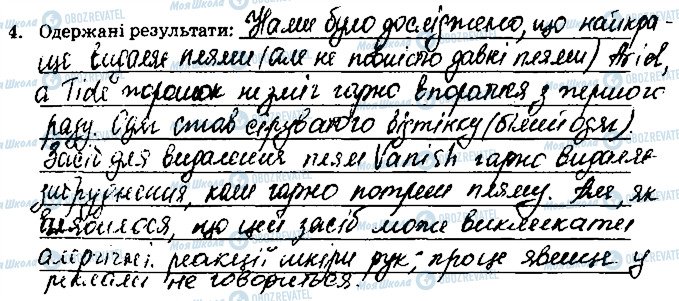 4. Одержані результати: Нами було досліджено, що найкра-
ще видаляє плями (але не повністю давні плями) Ariel,
а Tide порошок не зміг гарно впоратися з першого
разу. Одяг став сіруватого відтінку (білий одяг)
Засіб для видалення плям Vanish гарно видаляє
забруднення, коли гарно потерти пляму. Але, як
виявилося, що цей засіб може викликати
алергічні реакції шкіри рук; про це явище у
рекламі не говориться.